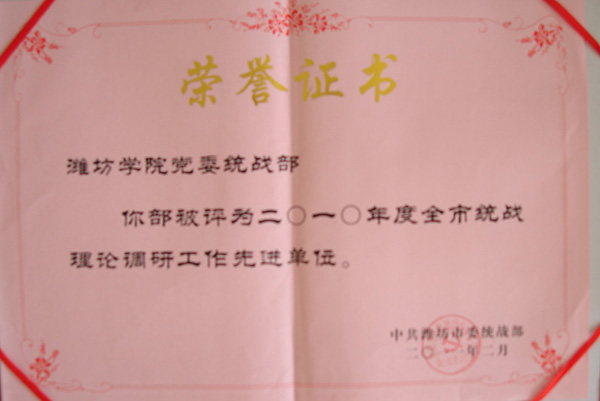 荣誉证书
潍坊学院党委统战部
你部被评为二〇一〇年度全市统战
理论调研工作先进单位。
中共潍坊市委统战部
二〇一一年二月